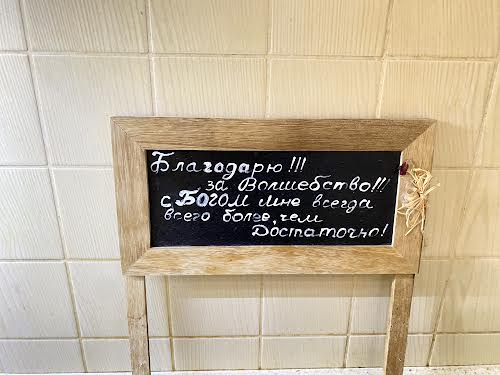 Благодарю!!!
за Волшебство!!!
с Богом мне всегда
всего более, чем
Достаточно!